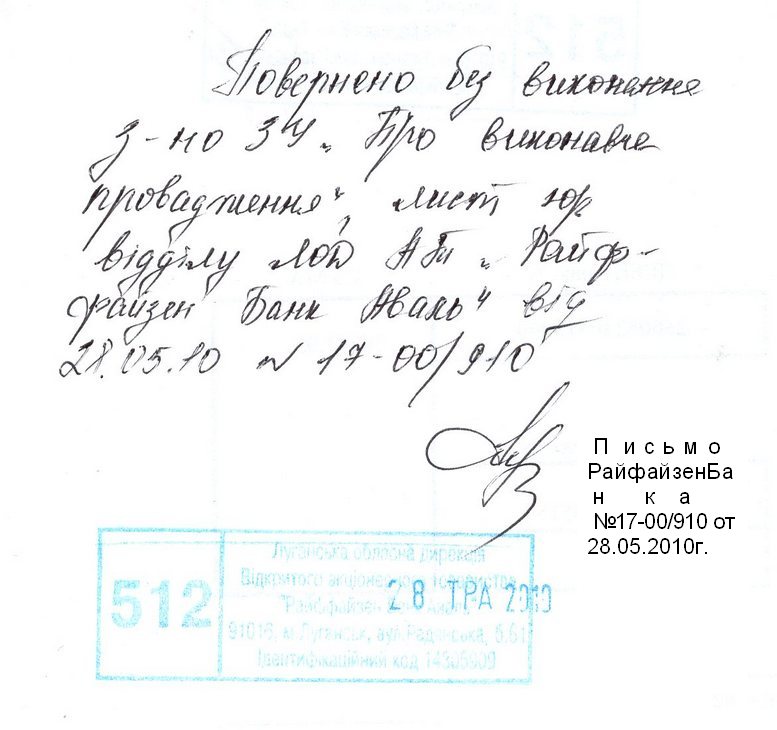 Повернено без виконання
з-но ЗУ „Про виконавче
провадження", лист юр
відділу ЛОД АТ „Райф-
файзен Банк Аваль" від
28.05.10 № 17-00/910
Письмо
РайфайзенБа
нка
№17-00/910 от
28.05.2010г.
512
Луганська обласна дирекція
Відкритого акціонерного товариства
"Райффайзен
28 ТРА 2010
91016, м.Луганськ, вул.Радянська, б.61
Ідентифікаційний код 14305909
512